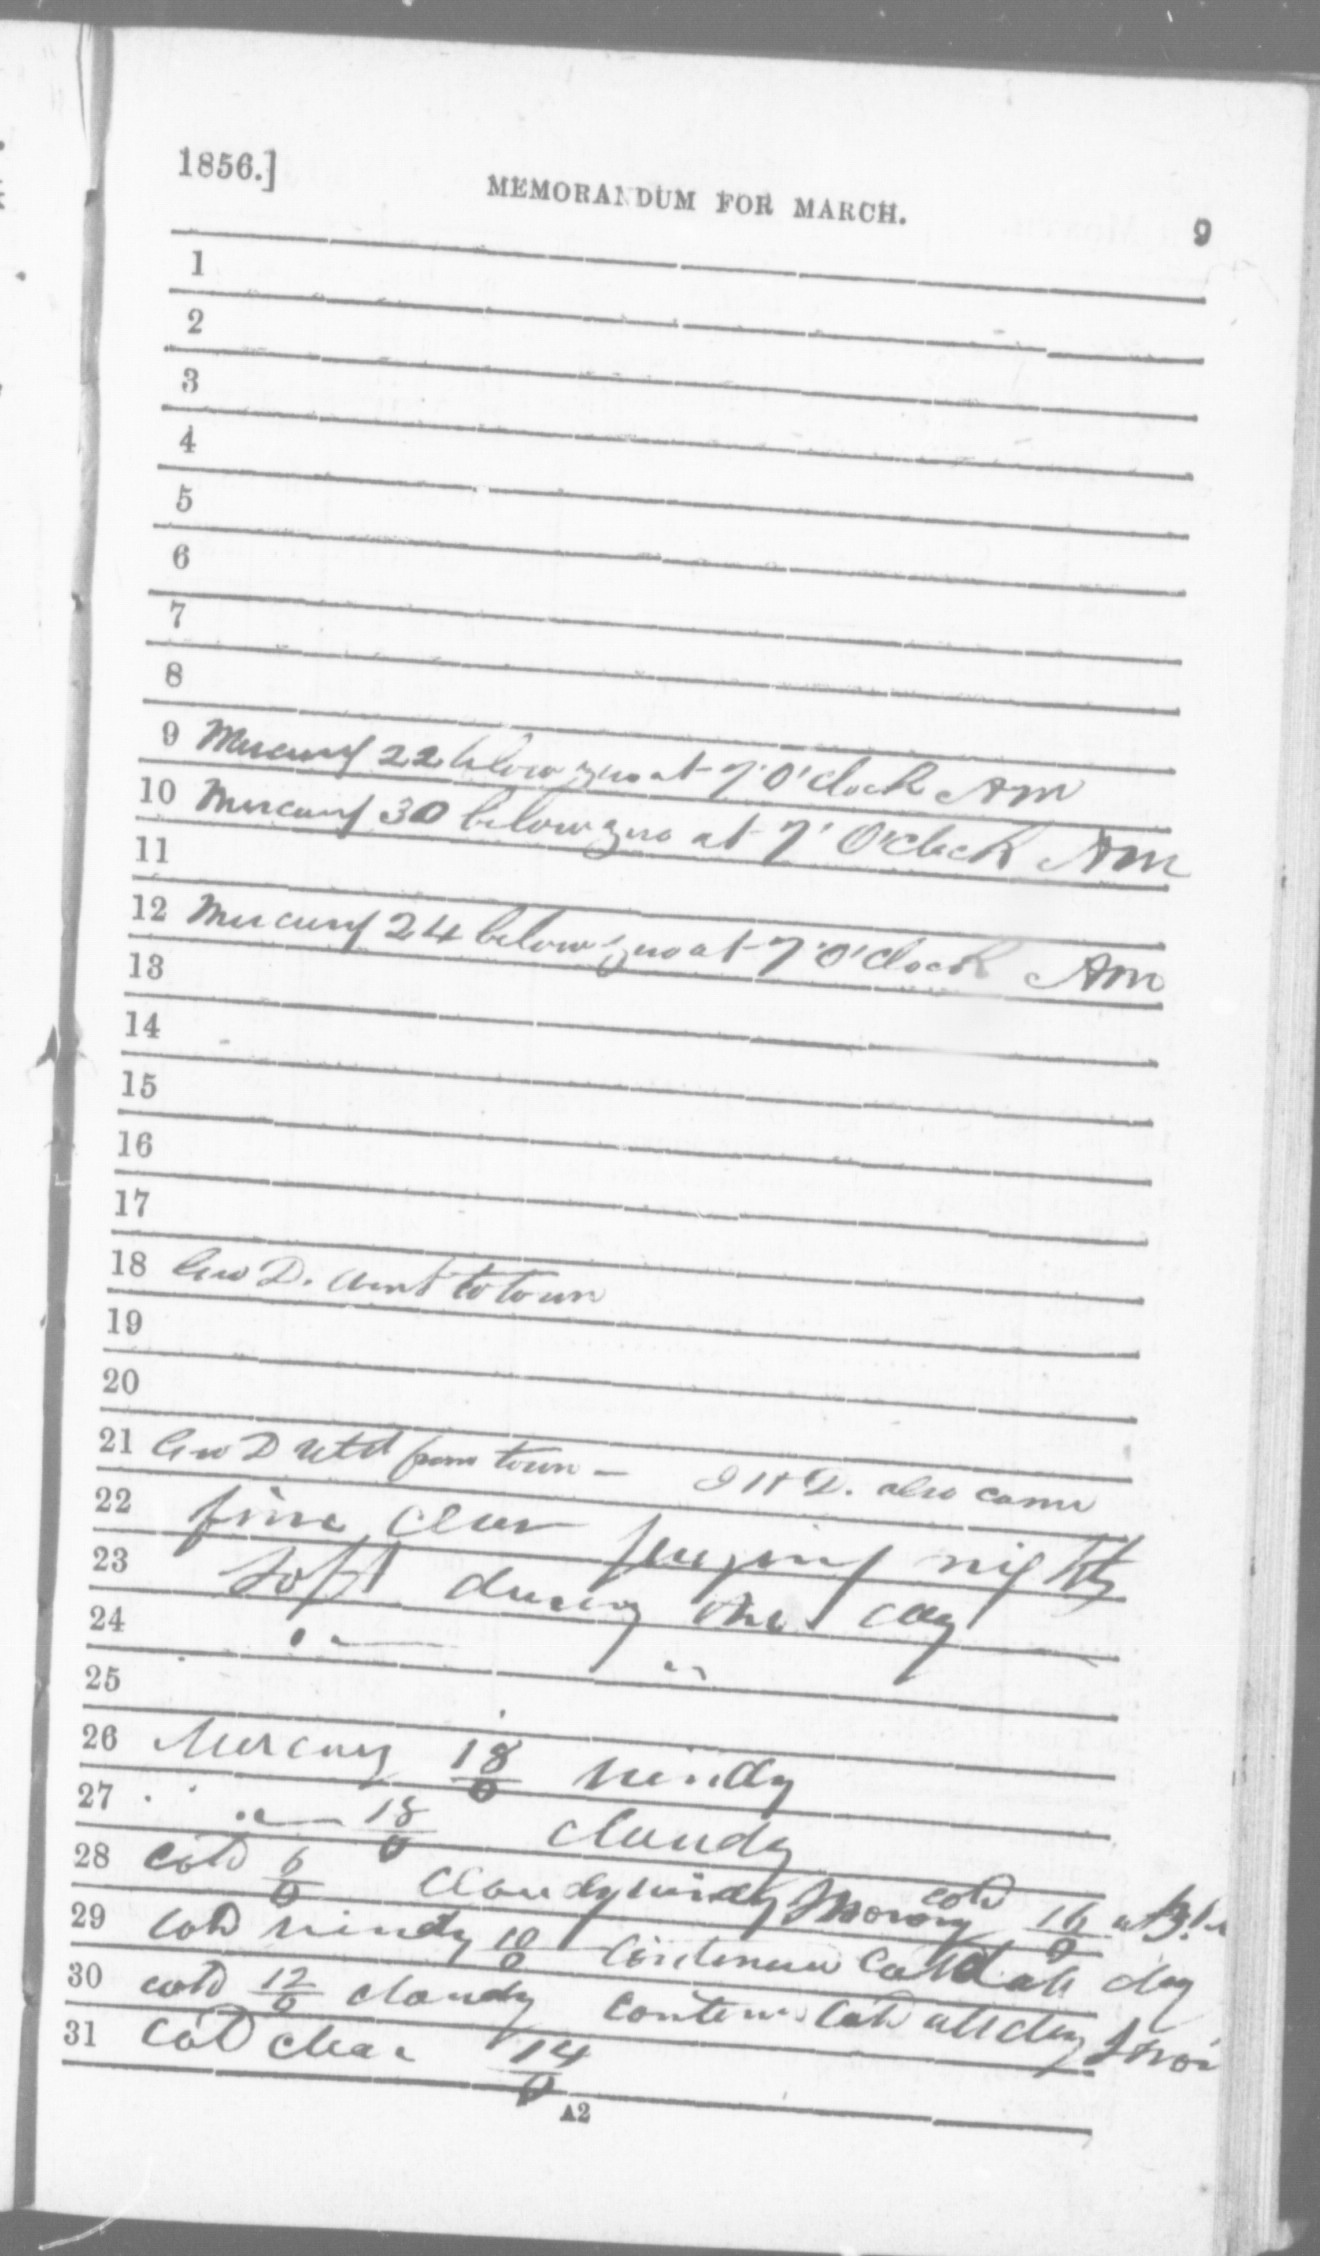 1856.]
MEMORANDUM FOR MARCH.
9
1
2
3
4
5
6
7
8
9 Mercury 22 below zero at 7 O'clock AM
10 Mercury 30 below zero at 7 O'clock AM
11
12 Mercury 24 below zero at 7 O'clock AM
13
14
15
16
17
18 Geo D. went to town
19
20
21 Geo D retd from town — J H D. also came
22 fine clear freezing nights
23 soft during the day
24 " — "
25
26 Mercury 18/0 windy
27 " — 18/0 cloudy
28 cold 6/0 Cloudy windy cold 16/0 at
29 cold windy 10/0 Continues Cold all day
30 cold 12/0 cloudy cold all day
31 cold clear 14/0
A2